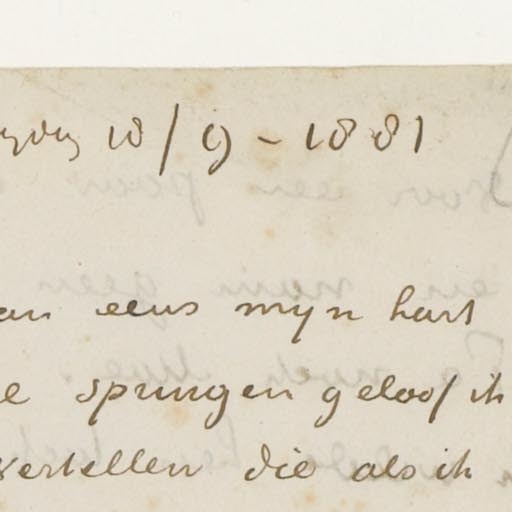 18/9-1881
eens myn hart
springen geloof ik
vertellen die als ik